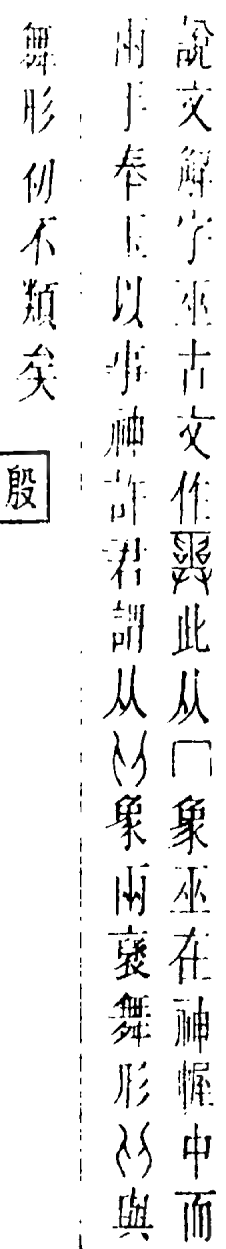 說文解字巫古文作𢍮此从冂象巫在神幄中而
兩手奉玉以事神許君謂从𠬞象兩褎舞形𠬞與
舞形仞不類矣 殷